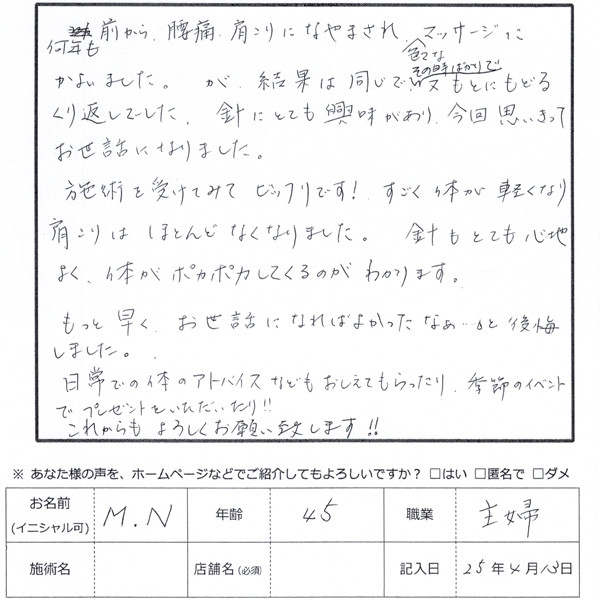 何年も前から、腰痛、肩こりになやまされ、マッサージに
かよいました。が、結果は同じで その時ばかりで 又もとにもどる
くり返しでした。針にとても興味があり、今回思いきって
お世話になりました。
施術を受けてみてビックリです!すごく体が軽くなり
肩こりはほとんどなくなりました。針もとても心地
よく、体がポカポカしてくるのがわかります。
もっと早く、お世話になればよかったなぁ…。と後悔
しました。
日常での体のアドバイスなどもおしえてもらったり、季節のイベント
でプレゼントをいただいたり!!
これからもよろしくお願い致します!!
※ あなた様の声を、ホームページなどでご紹介してもよろしいですか? □はい □匿名で □ダメ
お名前 (イニシャル可) M.N 年齢 45 職業 主婦
施術名 店舗名(必須) 記入日 25年4月13日